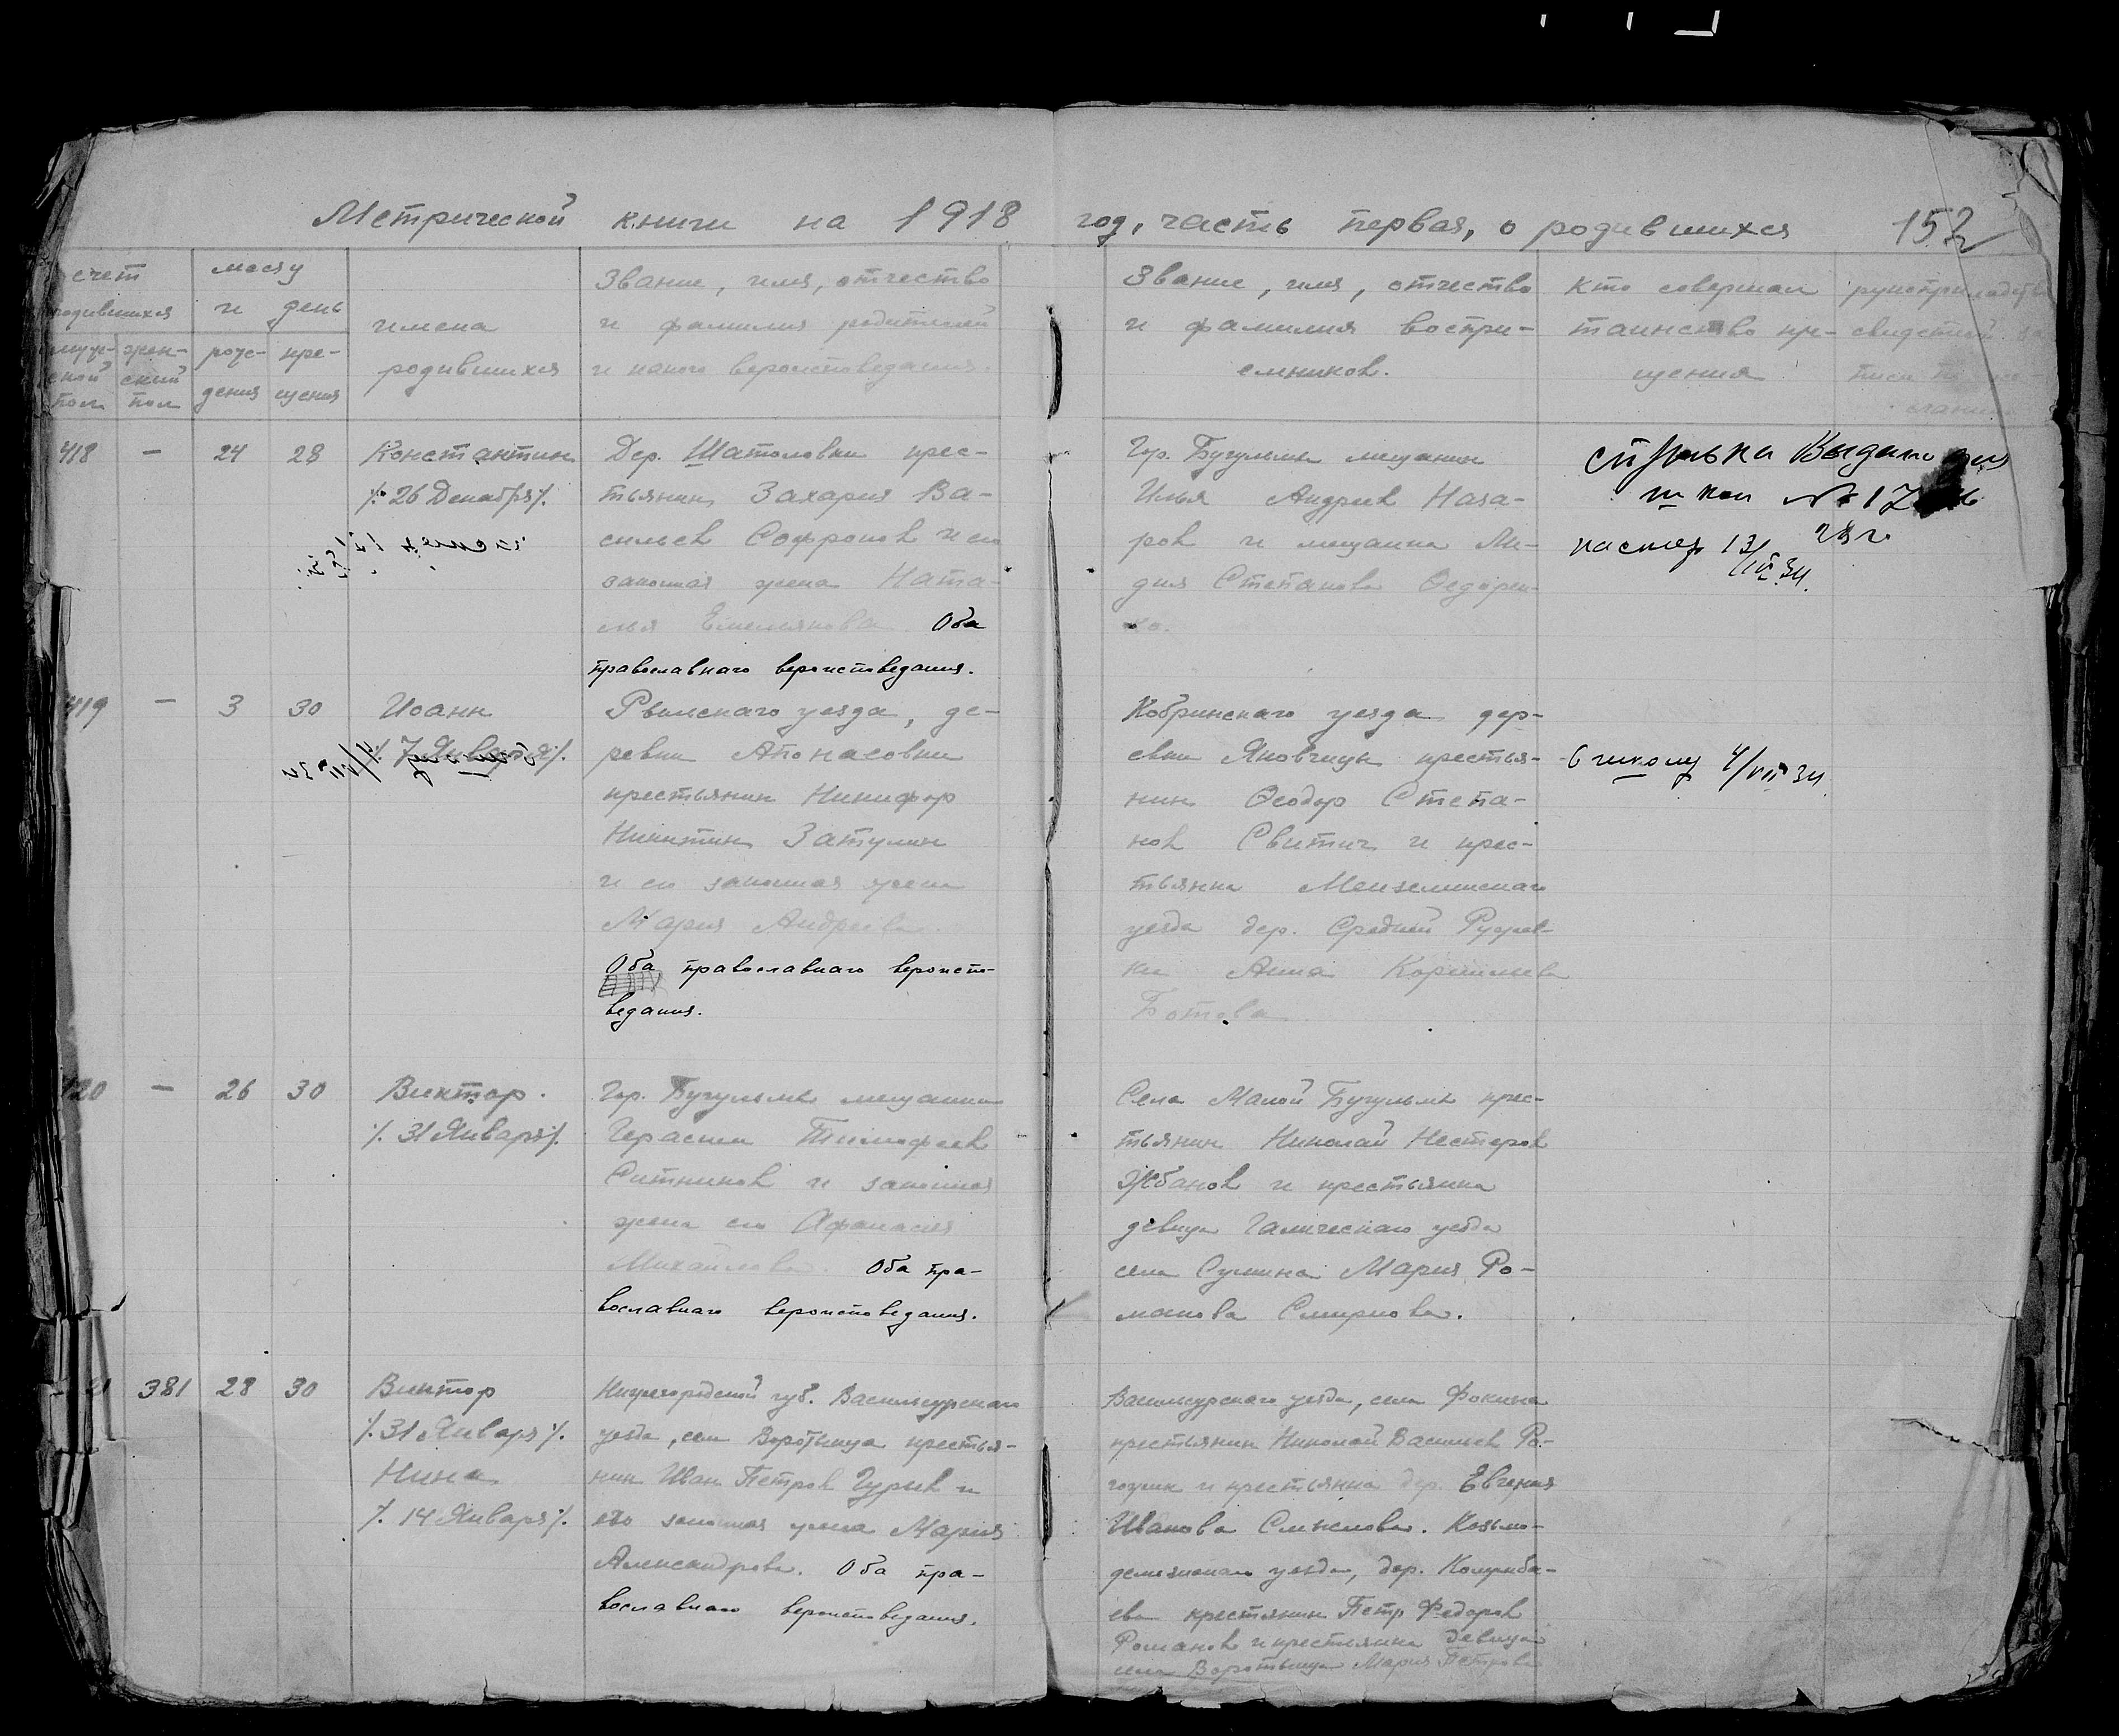 Метрической книги на 1918 год, часть первая, о родившихся 152
счет
родившихся
муж-
ской
пол
жен-
ский
пол
месяц
и день
рож-
дения
кре-
щения
имена
родившихся
Звание, имя, отчество
и фамилия родителей
и какого вероисповедания.
Звание, имя, отчество
и фамилия воспри-
емников.
Кто совершал
таинство кре-
щения
рукоприкладство
свидетелей за-
писи по же-
ланию
418 — 24 28
Константин
⁒ 26 Декабря ⁒
Дер. Шаталовки крес-
тьянин Захария Ва-
сильев Софронов и его
законная жена Ната-
лья Емельянова Оба
православнаго вероисповедания.
Гор. Бугульмы мещанин
Илья Андреев Наза-
ров и мещанка Ли-
дия Степанова Федорен-
ко.
справка Выдана для
школ № 17
28 г.
паспор 13/IV 34.
419 — 3 30
Иоанн
⁒ 7 Января ⁒
уезда, де-
ревни Апонасовки
крестьянин Никифор
Никитин Затулин
и его законная жена
Мария Андреева.
Оба православнаго вероиспо-
ведания.
Кобринскаго уезда дер-
евни Яновчицы крестья-
нин Феодор Степа-
нов Свитич и крес-
тьянка Мензелинскаго
уезда дер. Средней
Анна Корнильева
Ботова
в школу 4/VII 34.
420 — 26 30
Виктор.
⁒ 31 Января ⁒
Гор. Бугульмы мещанин
Герасим Тимофеев
Ситников и законная
жена его Афанасия
Михайлова. Оба пра-
вославнаго вероисповедания.
Села Малой Бугульмы крес-
тьянин Николай Нестеров
Жбанов и крестьянка
девица Галическаго уезда
села Сумина Мария Ро-
манова Смирнова.
21 381 28 30
Виктор
⁒ 31 Января ⁒
Нина
⁒ 14 Января ⁒
Нижегородской губ. Васильсурскаго
уезда, села Воротынца крестья-
нин Иван Петров Гурьев и
его законная жена Мария
Александрова. Оба пра-
вославнаго вероисповедания.
Васильсурскаго уезда, села Фокина
крестьянин Николай Васильев Ро-
гожин и крестьянка дер. Евгения
Иванова Смыслова. Козьмо-
демьянскаго уезда, дер.
крестьянин Петр Федоров
Романов и крестьянка девица
села Воротынца Мария Петрова